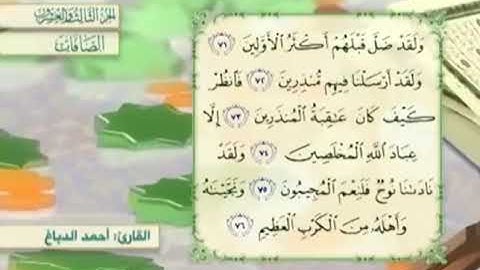 الجزء الثالث والعشرون
الصافات
وَلَقَدْ ضَلَّ قَبْلَهُمْ أَكْثَرُ الْأَوَّلِينَ ﴿٧١﴾
وَلَقَدْ أَرْسَلْنَا فِيهِم مُّنذِرِينَ ﴿٧٢﴾ فَانظُرْ
كَيْفَ كَانَ عَاقِبَةُ الْمُنذَرِينَ ﴿٧٣﴾ إِلَّا
عِبَادَ اللَّهِ الْمُخْلَصِينَ ﴿٧٤﴾ وَلَقَدْ
نَادَانَا نُوحٌ فَلَنِعْمَ الْمُجِيبُونَ ﴿٧٥﴾ وَنَجَّيْنَاهُ
وَأَهْلَهُ مِنَ الْكَرْبِ الْعَظِيمِ ﴿٧٦﴾
القارئ: أحمد الدباغ